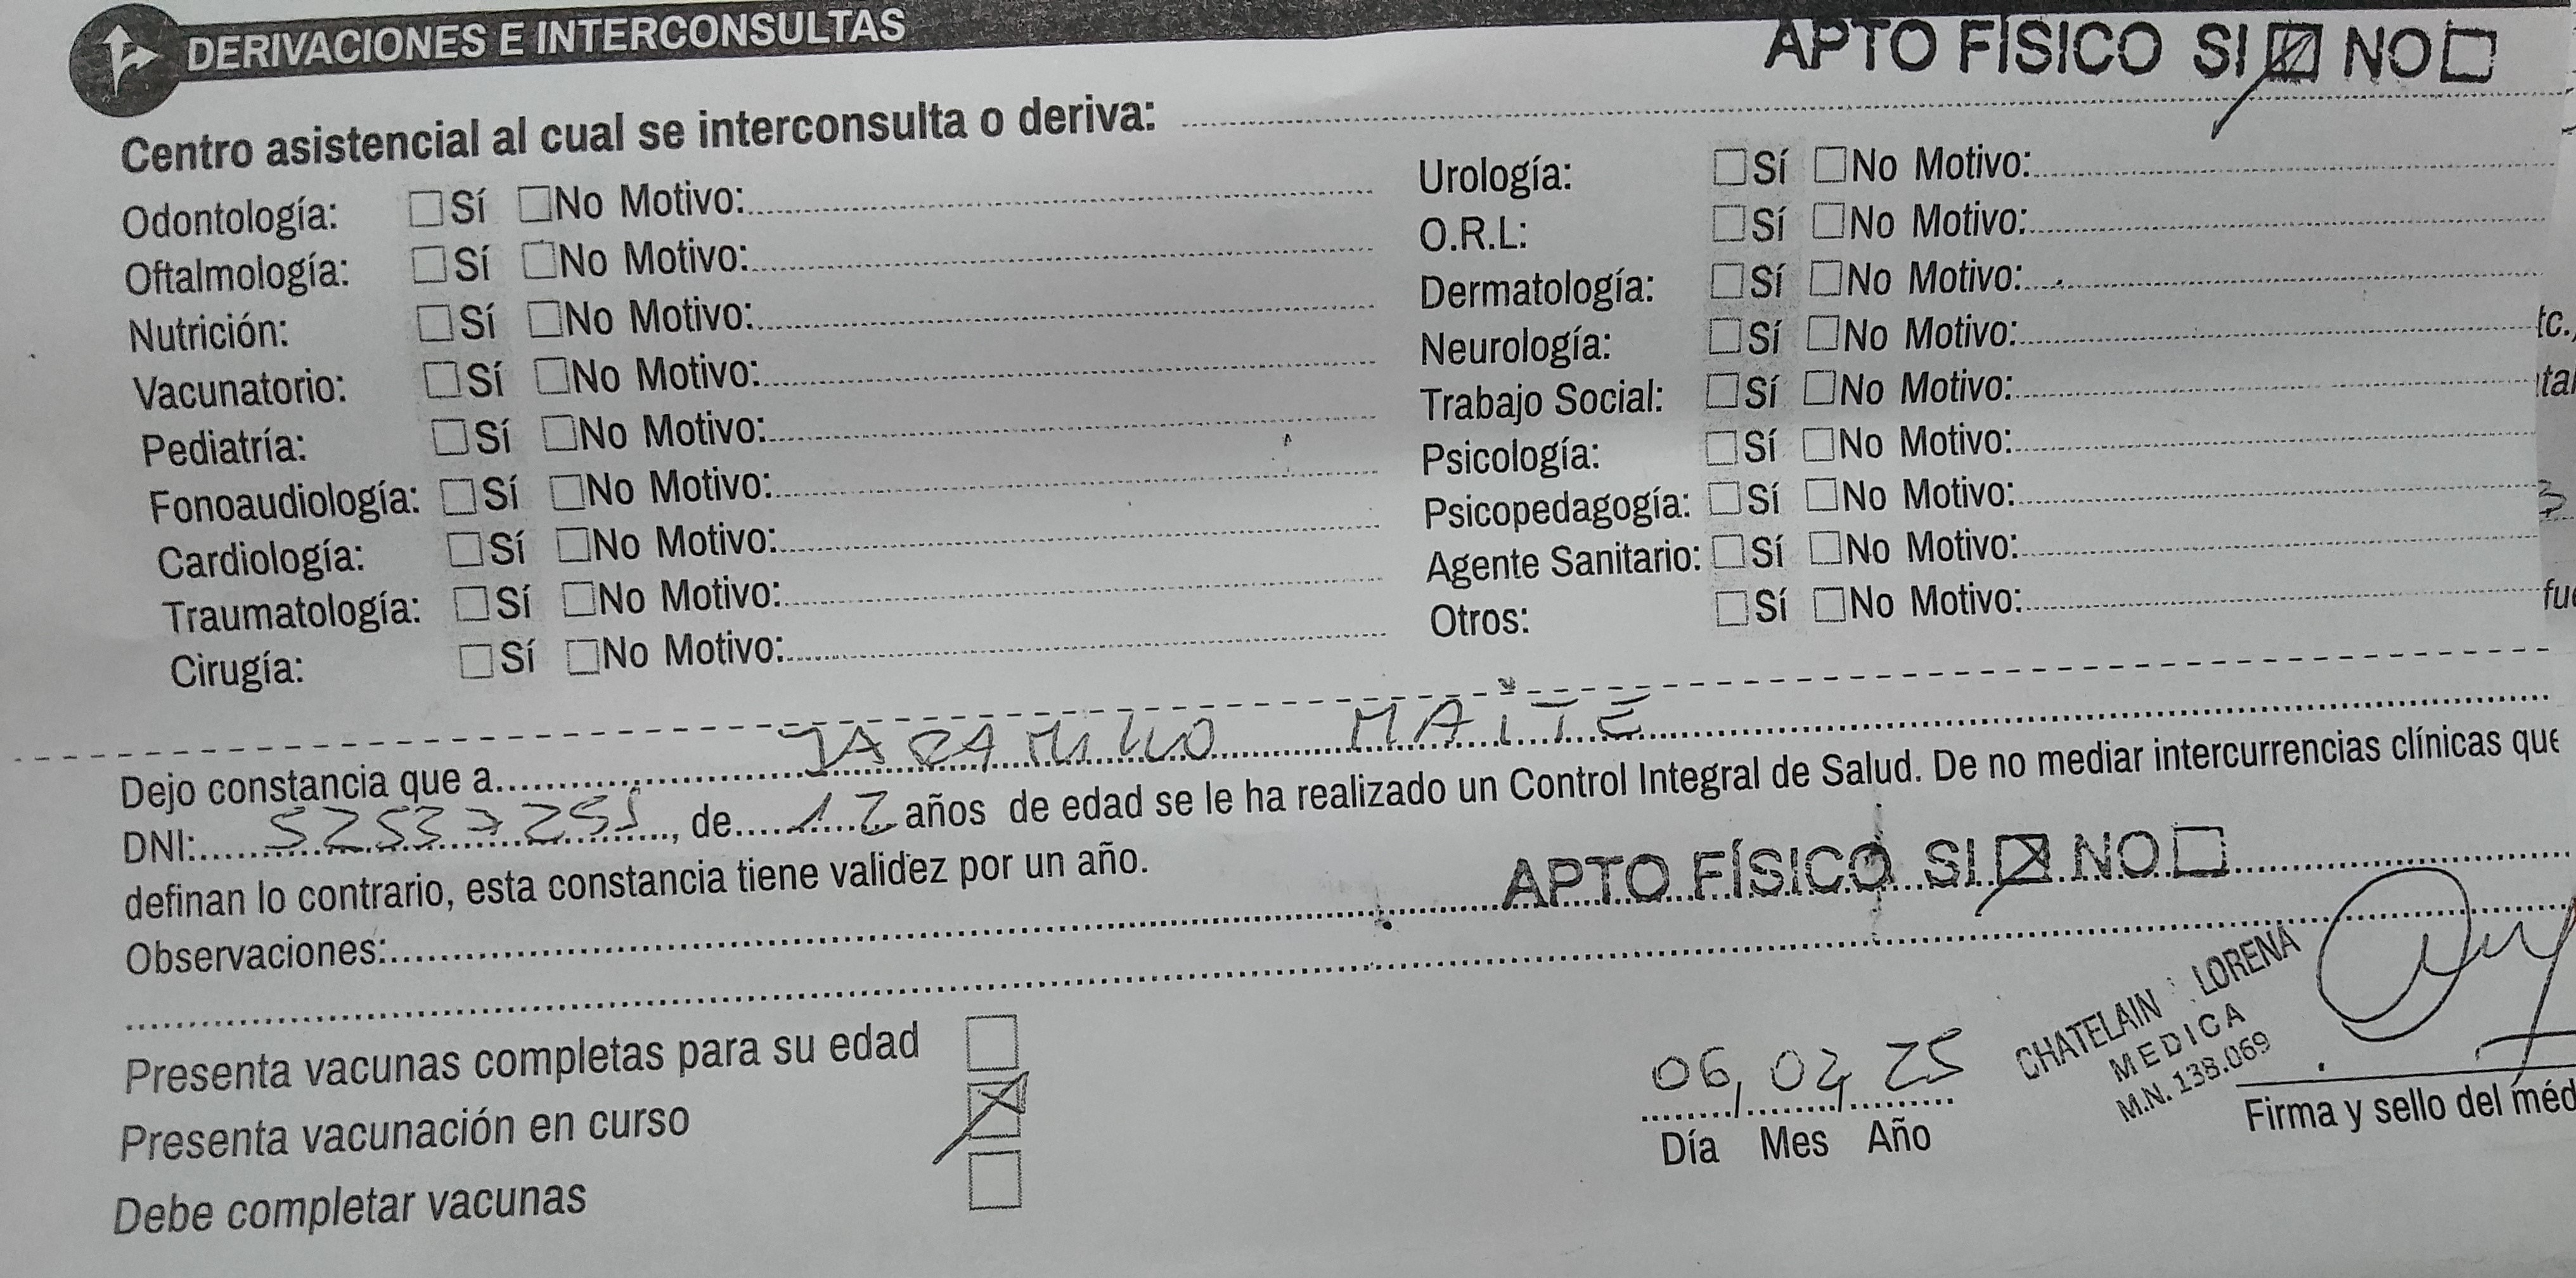 DERIVACIONES E INTERCONSULTAS
APTO FÍSICO SI NO
Centro asistencial al cual se interconsulta o deriva:
Odontología: Sí No Motivo:
Oftalmología: Sí No Motivo:
Nutrición: Sí No Motivo:
Vacunatorio: Sí No Motivo:
Pediatría: Sí No Motivo:
Fonoaudiología: Sí No Motivo:
Cardiología: Sí No Motivo:
Traumatología: Sí No Motivo:
Cirugía: Sí No Motivo:
Urología: Sí No Motivo:
O.R.L: Sí No Motivo:
Dermatología: Sí No Motivo:
Neurología: Sí No Motivo:
Trabajo Social: Sí No Motivo:
Psicología: Sí No Motivo:
Psicopedagogía: Sí No Motivo:
Agente Sanitario: Sí No Motivo:
Otros: Sí No Motivo:
Dejo constancia que a JARAMILLO MAITE
DNI: 52537255, de 12 años de edad se le ha realizado un Control Integral de Salud. De no mediar intercurrencias clínicas que
definan lo contrario, esta constancia tiene validez por un año.
APTO FÍSICO SI NO
Observaciones:
Presenta vacunas completas para su edad
Presenta vacunación en curso
Debe completar vacunas
06/02/25
Día Mes Año
CHATELAIN LORENA
MEDICA
M.N. 138.069
Firma y sello del